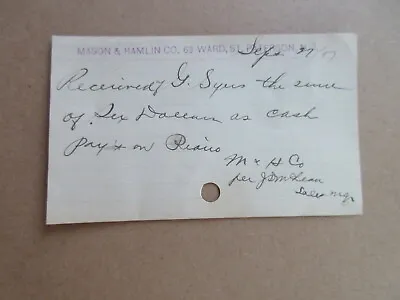 MASON & HAMLIN CO. 62 WARD ST. PATERSON N.J.
Sep 27/07
Received of G. Syms the sum
of Six Dollars as cash
pay't on Piano
M & H Co
per J D McLean
Sales Mgr